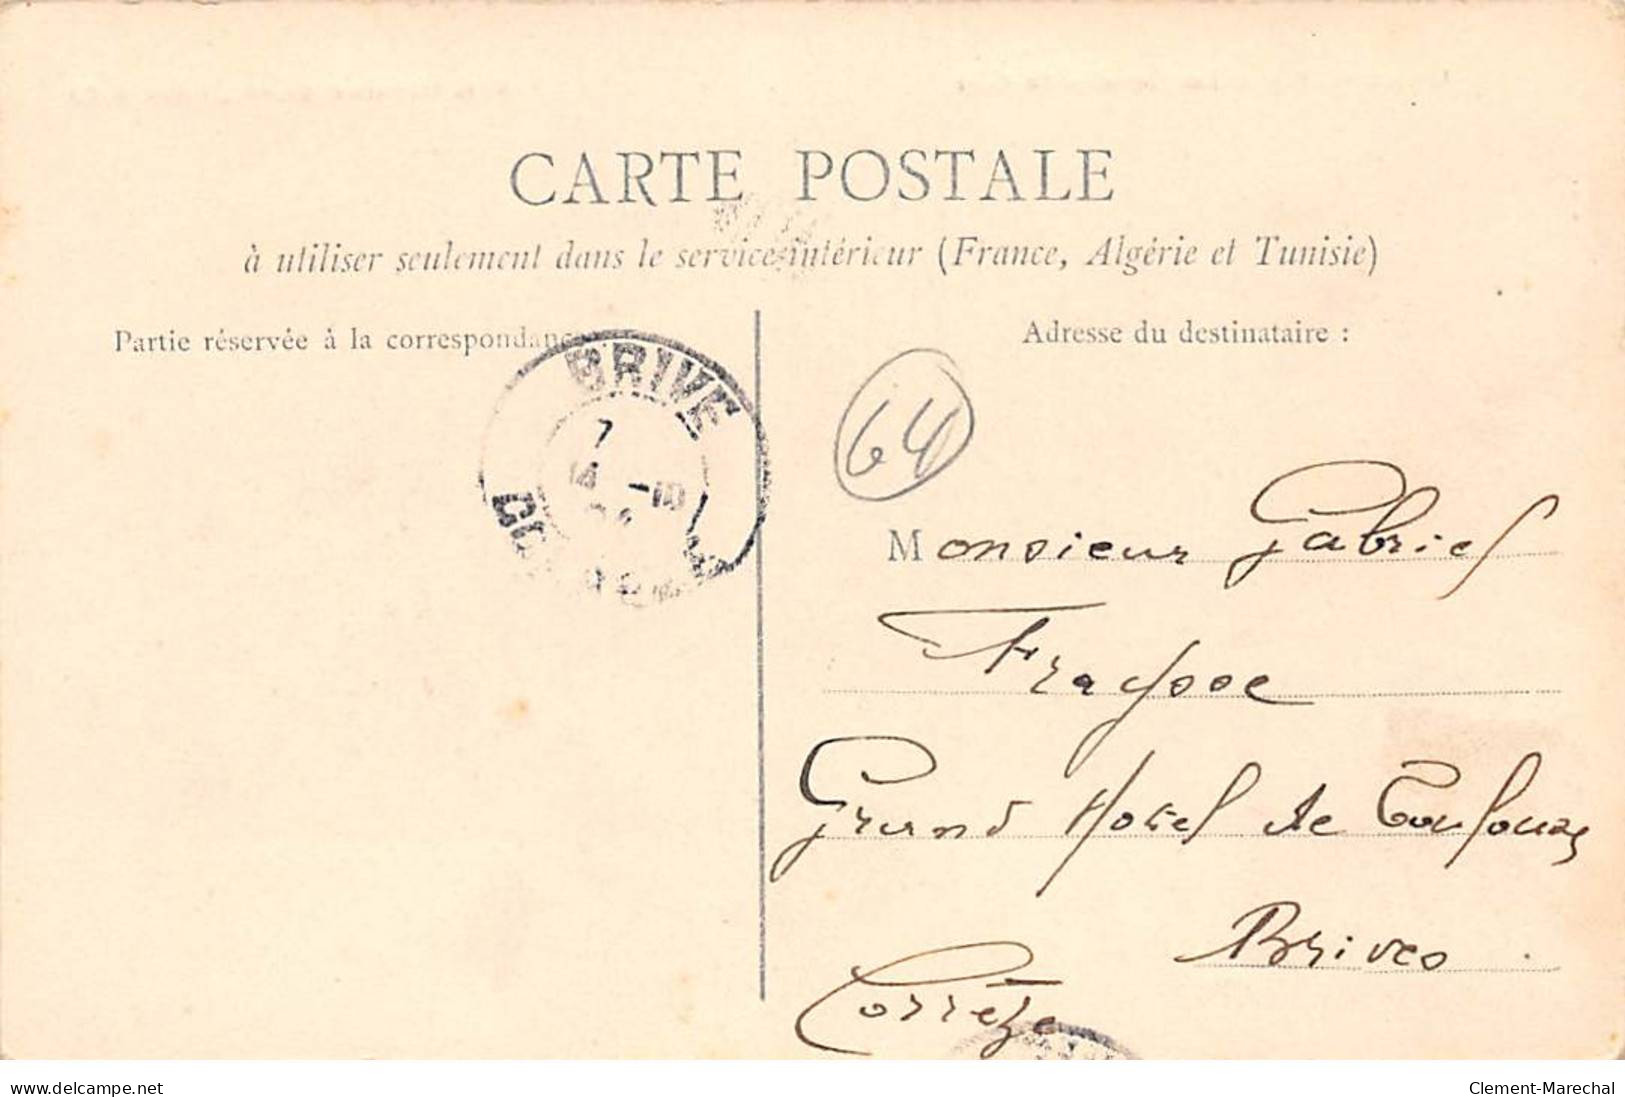 CARTE POSTALE
à utiliser seulement dans le service intérieur (France, Algérie et Tunisie)
Partie réservée à la correspondance
Adresse du destinataire :
BRIVE
7
14 -10
64
Monsieur Gabriel
Grand Hotel de Toulouze
Brives
Corrèze
www.delcampe.net
Clement-Marechal